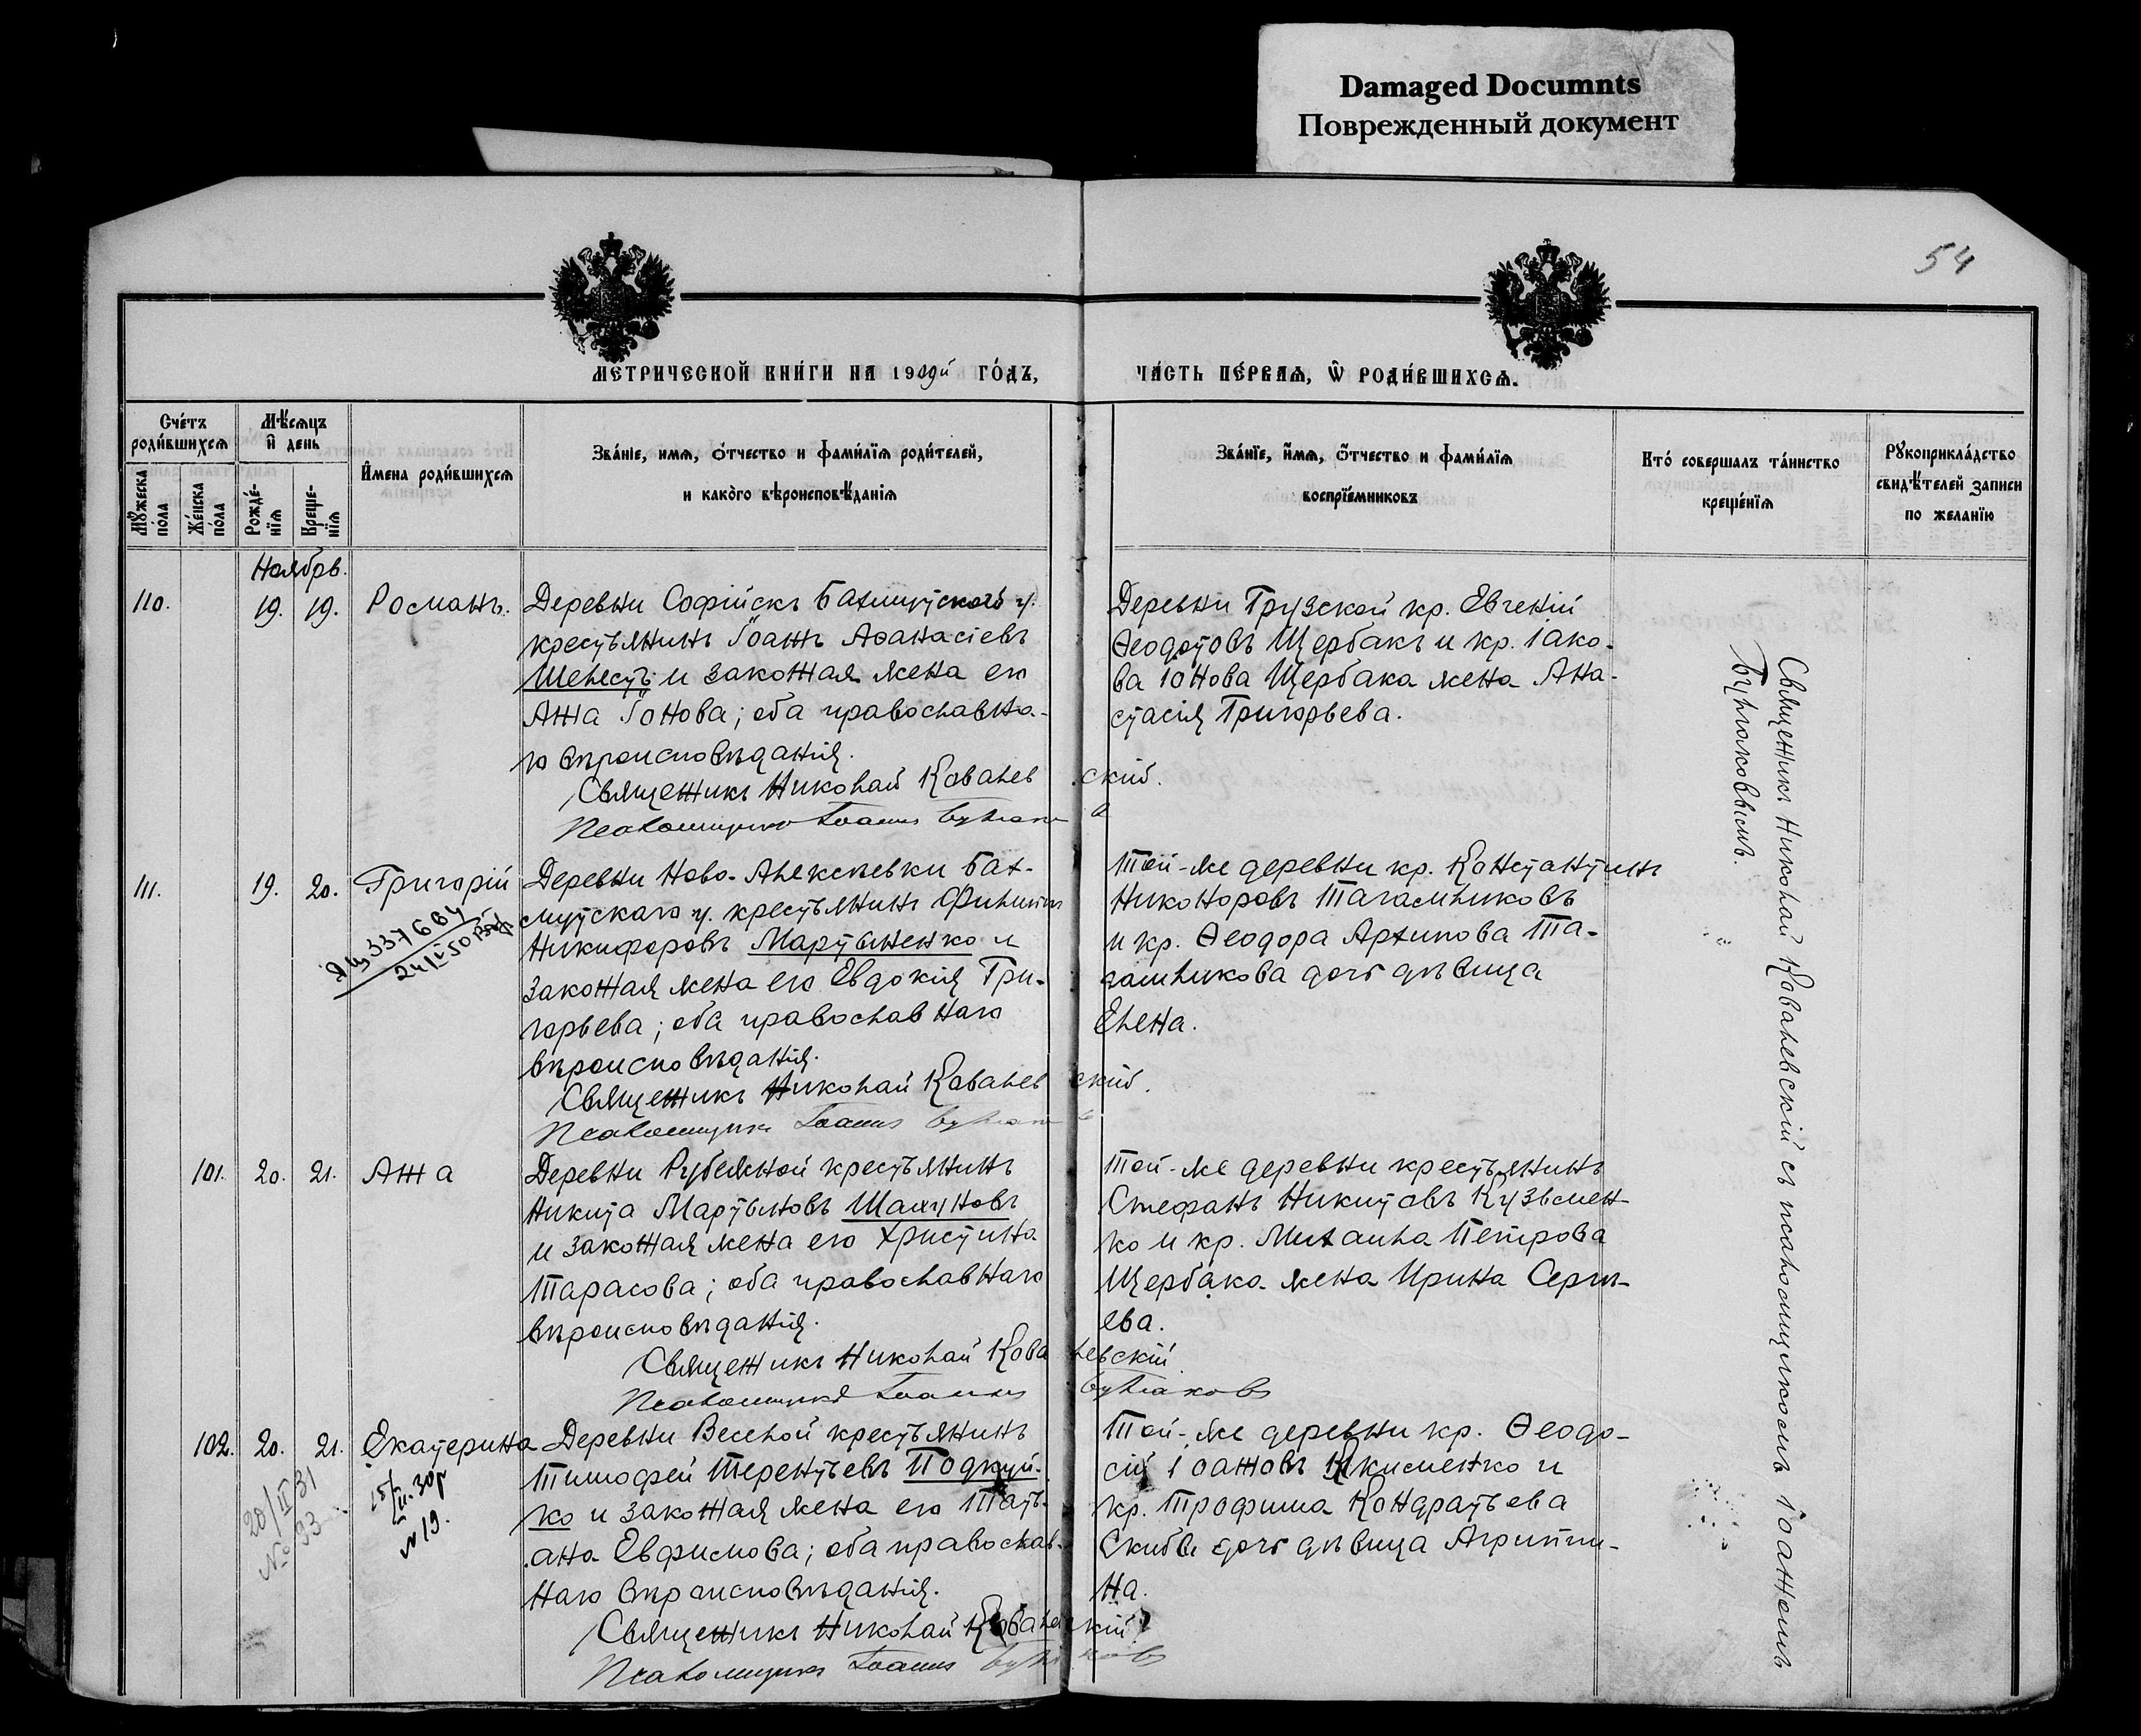 Damaged Documnts
Поврежденный документ
54
МЕТРИЧЕСКОЙ КНИГИ НА 1909й ГОДЪ,
ЧАСТЬ ПЕРВАЯ, Ѿ РОДИВШИХСЯ.
Счетъ родившихся
Мѣсяцъ и день
Имена родившихся
Званіе, имя, отчество и фамилія родителей,
и какого вѣроисповѣданія
Званіе, имя, отчество и фамилія
воспріемниковъ
Кто совершалъ таинство
крещенія
Рꙋкоприкладство
свидѣтелей записи
по желанію
Мꙋжеска пола
Женска пола
Рожде-нія
Креще-нія
Ноябрь.
110.
19. 19.
Романъ.
Деревни Софійскъ Бахмутскаго у.
крестьянинъ Іоаннъ Аѳанасіевъ
Шелестъ и законная жена его
Анна Іонова; оба православна-
го вѣроисповѣданія.
Священникъ Николай Ковалевскій.
Псаломщикъ Іоаннъ
Деревни Грузской кр. Евгеній
Ѳеодотовъ Щербакъ и кр. Іако-
ва Іонова Щербака жена Ана-
стасія Григорьева.
111.
19. 20.
Григорій
337684
24/V 50
Деревни Ново-Алексѣевки Бах-
мутскаго у. крестьянинъ Филиппъ
Никифоровъ Мартыненко и
законная жена его Евдокія Гри-
горьева; оба православнаго
вѣроисповѣданія.
Священникъ Николай Ковалевскій.
Псаломщикъ Іоаннъ
Той-же деревни кр. Константинъ
Никоноровъ Тагамликовъ
и кр. Ѳеодора Архипова Та-
гамликова дочь дѣвица
Елена.
101.
20. 21.
Анна
Деревни Рубежной крестьянинъ
Никита Мартыновъ Шахуновъ
и законная жена его Христина
Тарасова; оба православнаго
вѣроисповѣданія.
Священникъ Николай Ковалевскій
Псаломщикъ Іоаннъ
Той-же деревни крестьянинъ
Стефанъ Никитовъ Кузьмен-
ко и кр. Михаила Петрова
Щербака жена Ирина Серги-
ева.
102.
20. 21.
Екатерина
20/II 31
№ 93
15/II 30г
№19.
Деревни Веселой крестьянинъ
Тимофей Терентьевъ Подкуй-
ко и законная жена его Тать-
ана Евфимова; оба православ-
наго вѣроисповѣданія.
Священникъ Николай Ковалевскій
Псаломщикъ Іоаннъ
Той-же деревни кр. Ѳеодо-
сій Іоанновъ Якименко и
кр. Трофима Кондратьева
Скибы дочь дѣвица Агриппи-
на.
Священникъ Николай Ковалевскій съ псаломщикомъ Іоанномъ